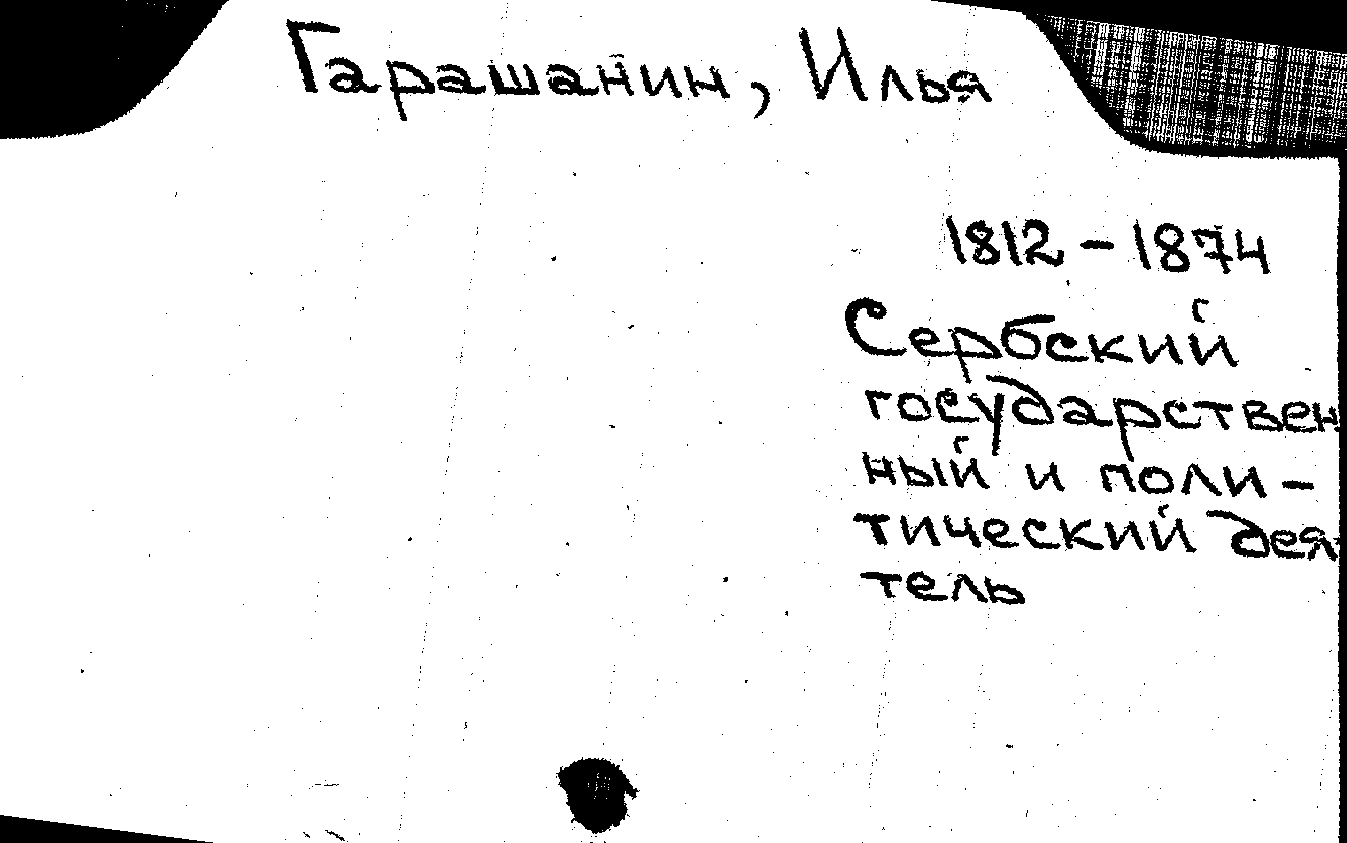 Гарашанин, Илья
1812 - 1874
Сербский
государствен
ный и поли-
тический дея-
тель